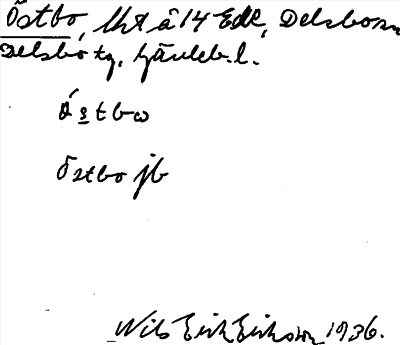 Östbo, lht å 14 Ede, Delsbo sn
Delsbo tg, Gävleb. l.
östbω
Östbo jb
Nils Erik Erikson 1936.